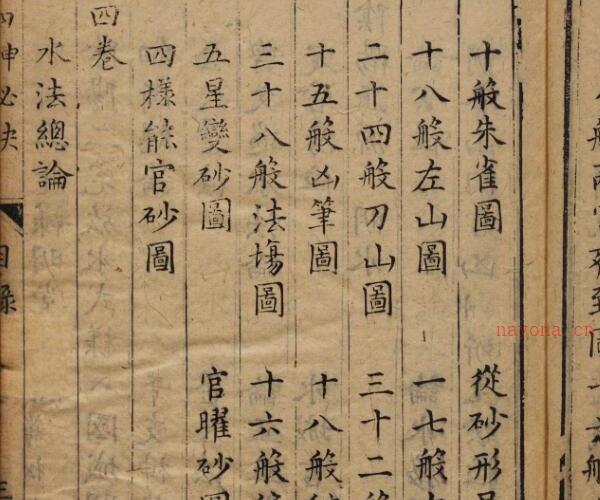 十般朱雀圖
從砂形
十八般左山圖
一七般
二十四般刀山圖
三十二
十五般凶筆圖
十八般
三十八般法塲圖
十六般
五星變砂圖
官曜砂
四樣能官砂圖
四卷
水法總論
目錄
nayona.cn